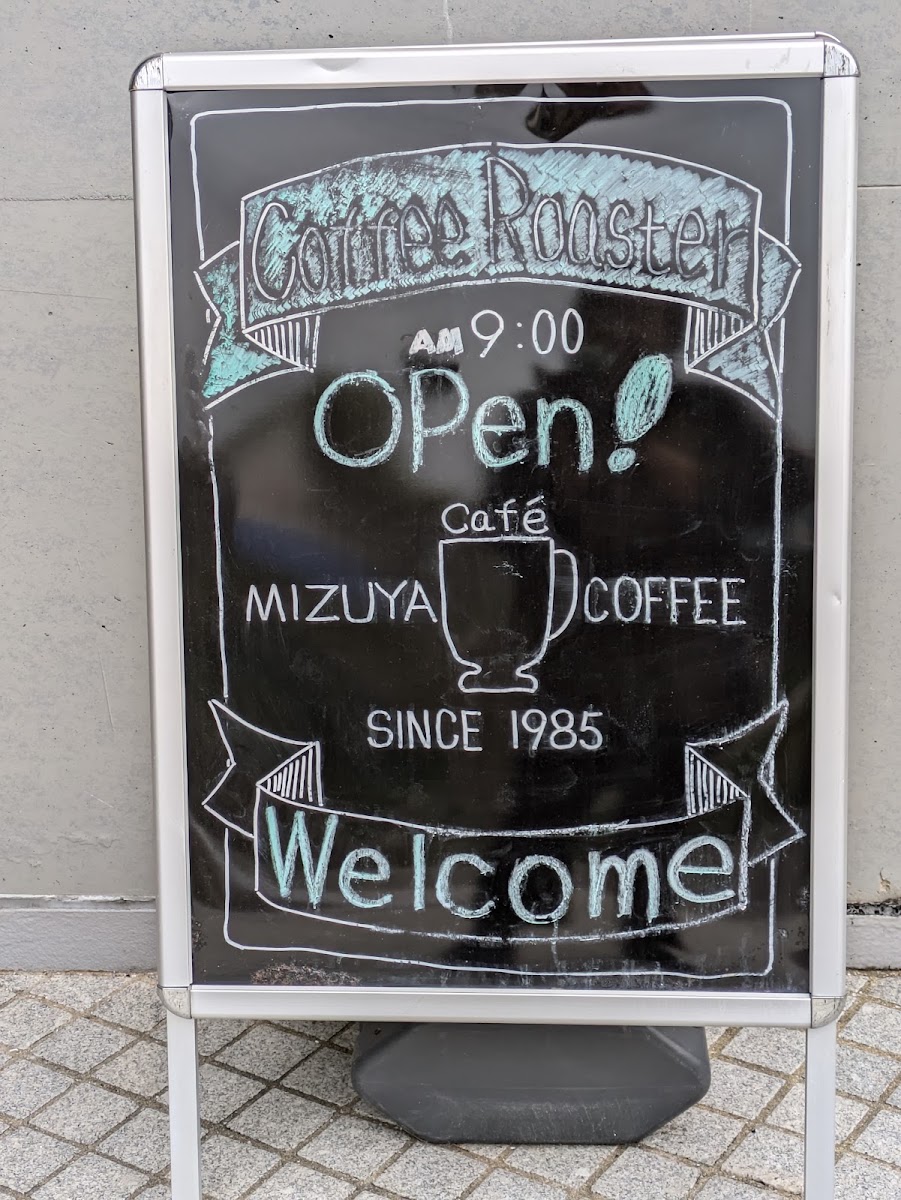 Coffee Roaster
AM 9:00
OPen!
Café
MIZUYA COFFEE
SINCE 1985
Welcome